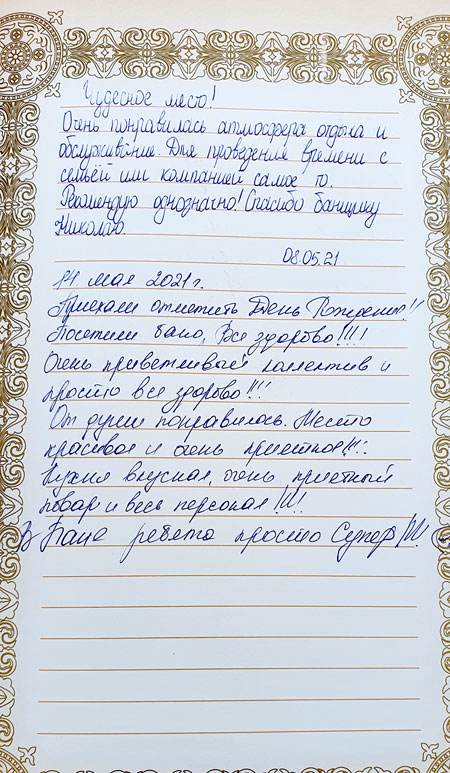 Чудесное место!
Очень понравилась атмосфера отдыха и
обслуживание. Для проведения времени с
семьёй или компанией самое то.
Рекомендую однозначно! Спасибо банщику
Николаю.
08.05.21
14 мая 2021 г.
Приехали отметить День Рождения!!
Посетили баню, Все здорово!!!!
Очень приветливый коллектив и
просто все здорово!!!
От души понравилось. Место
красивое и очень приятное!!!
Кухня вкусная, очень приятный
повар и весь персонал!!!!
В Бане ребята просто Супер!!!!